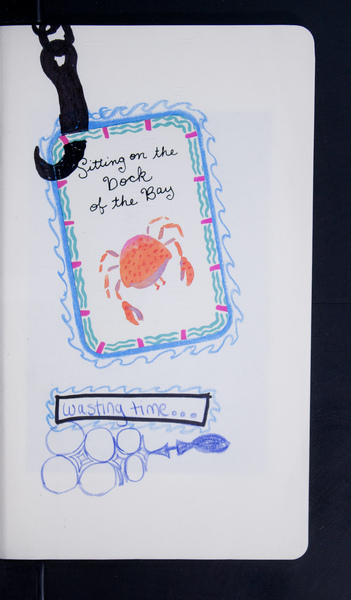 Sitting on the
Dock
of the Bay
wasting time...